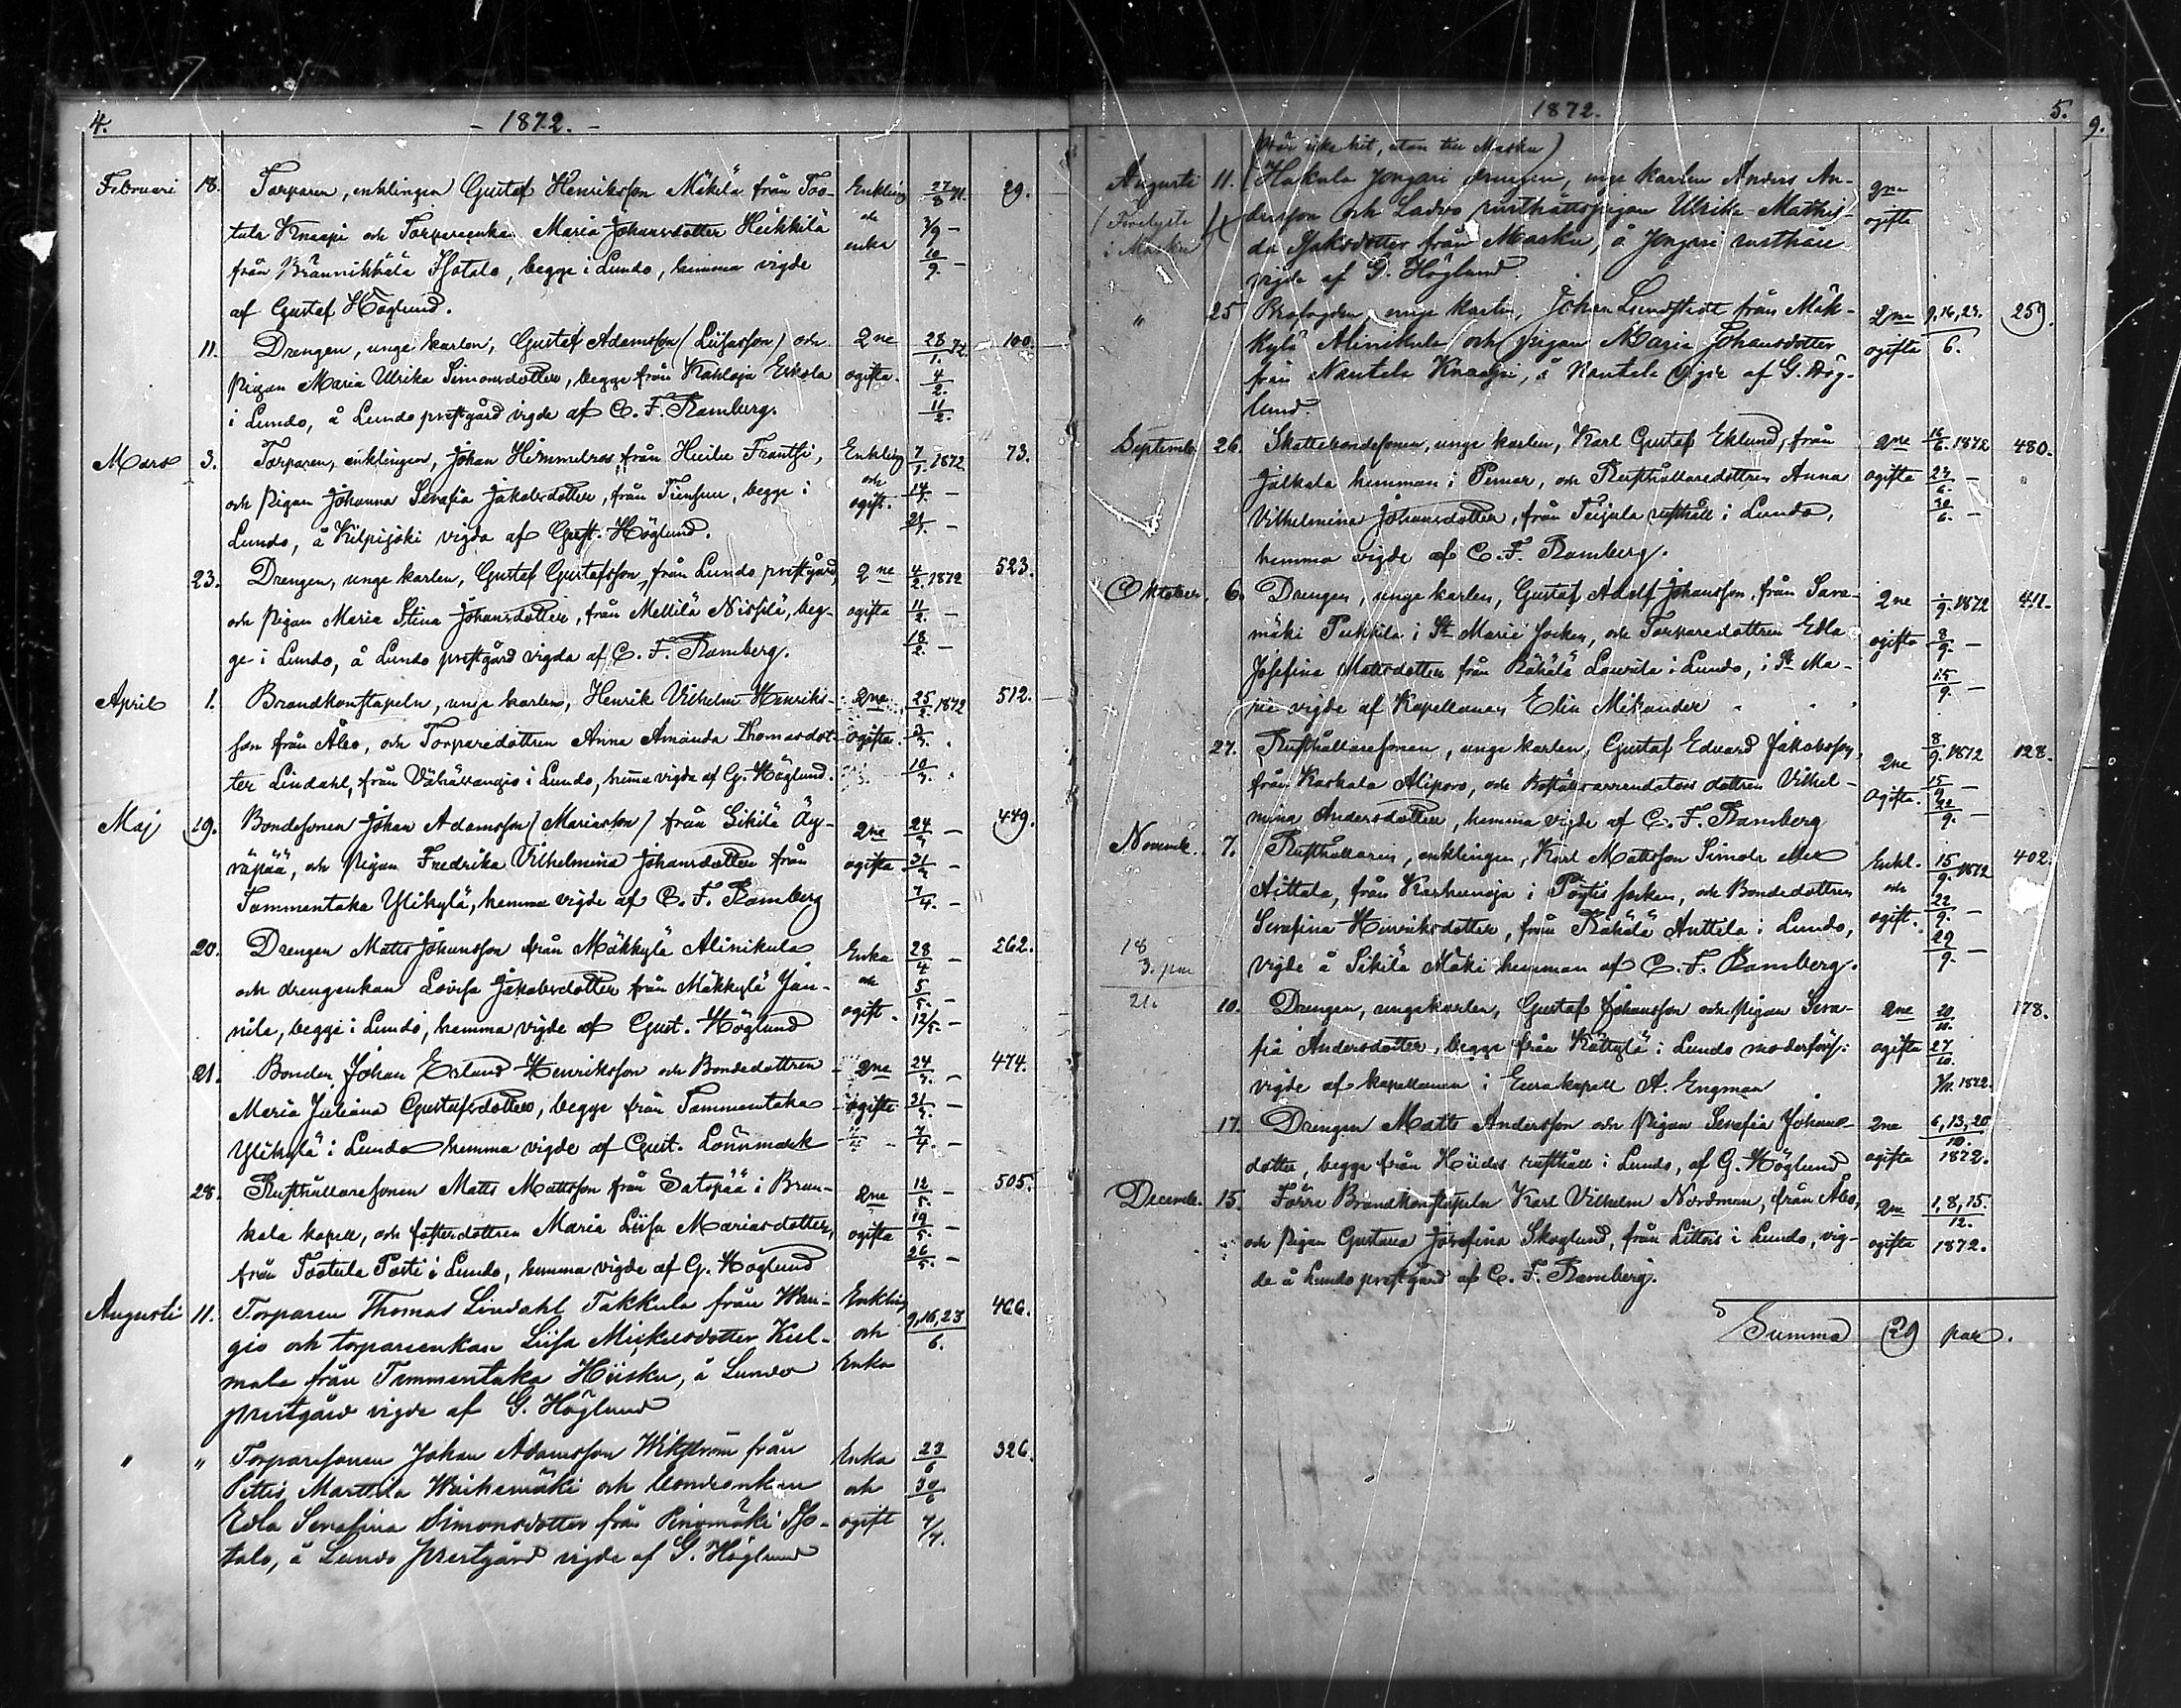 4.
- 1872. -
Februari 18. Torparen, enklingen Gustaf Henriksson Mäkilä från Too- Enkling 27/8 71. 29.
tula Knaapi och Torpareenkan Maria Johansdotter Heikkilä och 3/9 -
från Isotalo, begge i Lundo, hemma vigde enka 10/9. -
af Gustaf Höglund.
11. Drengen, unge karlen, Gustaf Adamsson (Liisasson) och 2ne 28/1. 72. 100.
Pigan Maria Ulrika Simonsdotter, begge från Eskola ogifta. 4/2.
i Lundo, å Lundo prestgård vigde af C. F. Ramberg. 11/2.
Mars 3. Torparen, enklingen, Johan Himmelroos, från Frantsi, Enkling 7/1. 1872 73.
och Pigan Johanna Serafia Jakobsdotter, från begge i och ogift. 14/1. -
Lundo, å Kilpijoki vigda af Gust. Höglund. 21/1. -
23. Drengen, unge karlen, Gustaf Gustafsson, från Lundo prestgård, 2ne 4/2. 1872 523.
och Pigan Maria Stina Johansdotter, från Mellilä Nissilä, beg- ogifta 11/2. -
ge i Lundo, å Lundo prestgård vigda af C. F. Ramberg. 18/2. -
April 1. Brandkonstapeln, unge karlen, Henrik Vilhelm Henriks- 2ne 25/2. 1872 512.
son från Åbo, och Torparedottren Anna Amanda Thomasdot- ogifta. 3/3.
ter Lindahl, från i Lundo, hemma vigda af G. Höglund. 10/3.
Maj 19. Bondesonen Johan Adamsson (Mariasson) från Sikilä Äy- 2ne 24/3 - 449.
räpää, och Pigan Fredrika Vilhelmina Johansdotter från ogifta 31/3 -
Tammentaka Ylikylä, hemma vigde af C. F. Ramberg 7/4. -
20. Drengen Matts Johansson från Mäkkylä Alinikula Enka 28/4 - 262.
och drengenkan Lovisa Jakobsdotter från Mäkkylä Jun- och 5/5. -
nila, begge i Lundo, hemma vigde af Gust. Höglund ogift. 12/5. -
21. Bonden Johan Erland Henriksson och Bondedottren 2ne 24/3. - 474.
Maria Juliana Gustafsdotter, begge från Tammentaka ogifte 31/3. -
Ylikylä i Lundo hemma vigde af Gust. Lönnmark 7/4. -
28. Rusthållaresonen Matts Mattsson från Satopää i Brun- 2ne 12/5. - 505.
kala kapell, och fosterdottren Maria Liisa Mariasdotter, ogifta 19/5. -
från Tootula Posti i Lundo, hemma vigde af G. Höglund 26/5. -
Augusti 11. Torparen Thomas Lindahl Takkula från Wän- Enkling 9, 16, 23/6. 466.
gio och torpareenkan Liisa Mickelsdotter Kul- och
mala från Tammentaka Hiisku, å Lundo enka
prestgård vigde af G. Höglund
" " Torparesonen Johan Adamsson Wikström från Enka 23/6 326.
Pettis Marttila och bondeenkan och 30/6
Edla Serafina Simonsdotter från Pinomäki Iso- ogift 7/7.
talo, å Lundo prestgård vigde af G. Höglund
1872. 5.
9.
(Hör icke hit, utan till Masku)
Augusti 11. (Hakula Jongari drengen, unge karlen Anders An- 2ne
(Förelyste dersson och Ladvo rusthållspigan Ulrika Mathil- ogifta
i Masku) da Isaksdotter från Masku, å Jongari rusthåll
vigde af G. Höglund.
" 25 unge karlen, Johan Lundstedt från Mäk- 2ne 9, 16, 23. 259.
kylä Alinikula och pigan Maria Johansdotter ogifta 6.
från Nautela Knaapi, å Nautela vigde af G. Hög-
lund.
Septemb. 26. Skattebondesonen, unge karlen, Karl Gustaf Eklund, från 2ne 16/6. 1872 480.
Jalkala hemman i Pemar, och Rusthållaredottren Anna ogifta 23/6. -
Vilhelmina Johansdotter, från Teijula rusthåll i Lundo, 30/6. -
hemma vigde af C. F. Ramberg.
Oktober. 6. Drengen, unge karlen, Gustaf Adolf Johansson, från Sara- 2ne 1/9. 1872 411.
mäki Pukkila i St. Marie socken, och Torparedottren Edla ogifta 8/9. -
Josefina Mattsdotter från Rähälä Lowila i Lundo, i St. Ma- 15/9. -
rie vigde af Kapellanen Elis Mikander
27. Rusthållaresonen, unge karlen, Gustaf Edvard Jakobsson, 2ne 8/9. 1872 128.
från Kaskala Alipovo, och Boställsarrendators dottren Vilhel- ogifta. 15/9 -
mina Andersdotter, hemma vigde af C. F. Ramberg 22/9. -
Novemb. 7. Rusthållaren, enklingen, Karl Mattsson Simola eller Enkl. 15/9. 1872 402.
Aittala, från Karhunoja i Pöytis socken, och Bondedottren och 22/9. -
Serafina Henriksdotter, från Rähälä Anttila i Lundo, ogift. 29/9. -
vigde å Sikilä Mäki hemman af C. F. Ramberg.
18
3. par
21.
10. Drengen, ungekarlen, Gustaf Johansson och pigan Sera- 2ne 20/10. 178.
fia Andersdotter, begge från Kättylä i Lundo moderförs: ogifta 27/10
vigde af kapellanen i Eura kapell A. Engman 3/11. 1872.
17. Drengen Matts Andersson och Pigan Serafia Johans- 2ne 6, 13, 20/10.
dotter, begge från Hiidos rusthåll i Lundo, af G. Höglund ogifta 1872.
Decemb. 15. Förre Brandkonstapeln Karl Vilhelm Nordman, från Åbo, 2ne 1, 8, 15./12.
och Pigan Gustava Josefina Skoglund, från Littois i Lundo, vig- ogifta 1872.
de å Lundo prestgård af C. F. Ramberg.
Summa 29 par.